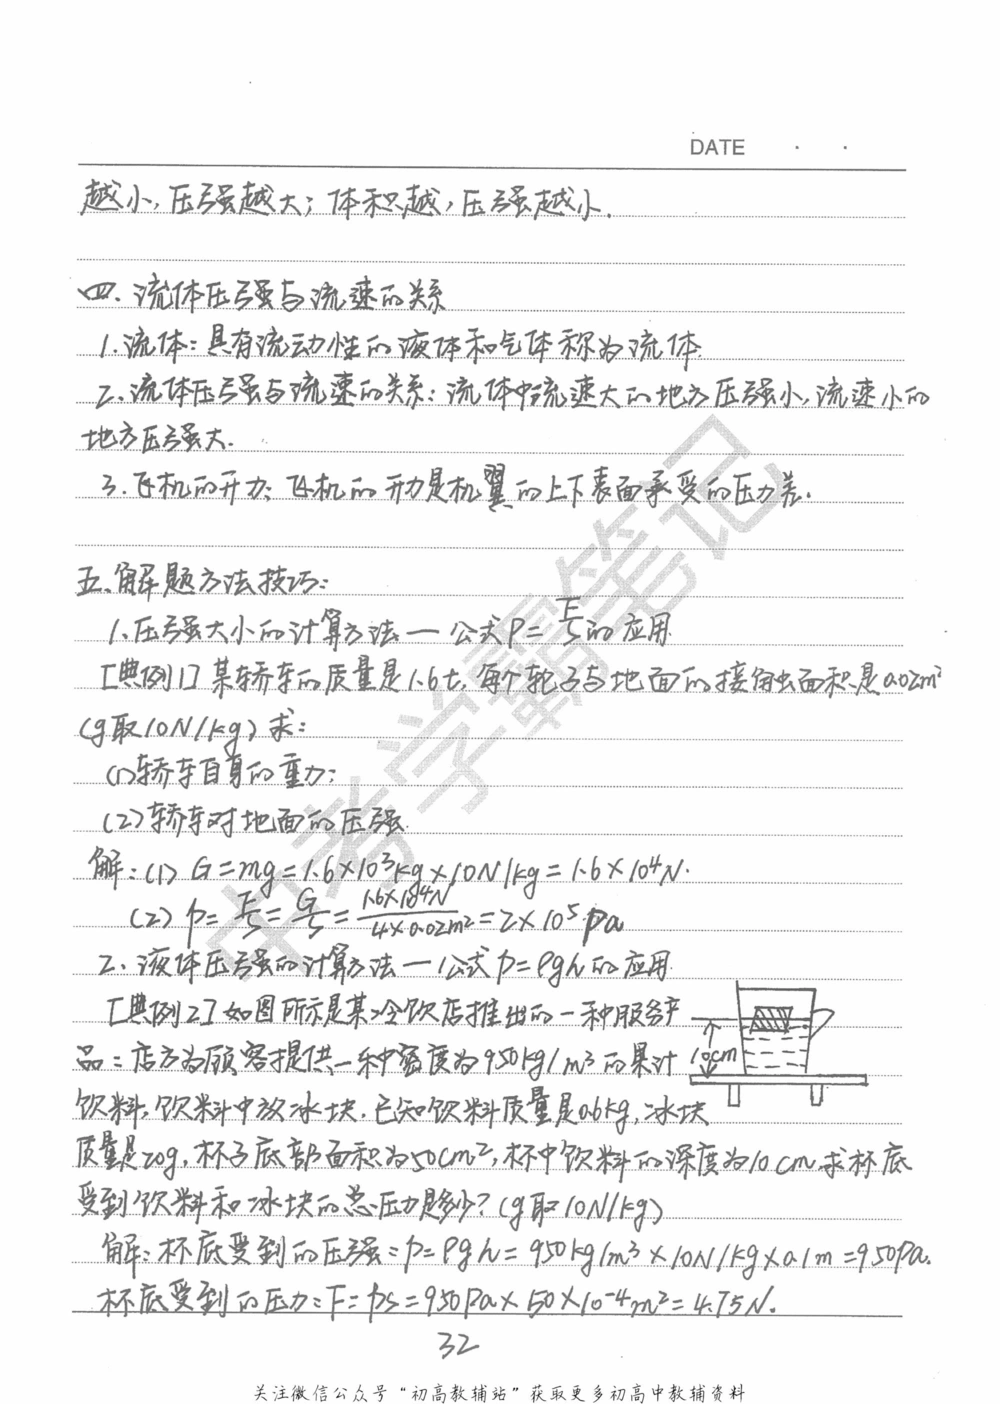 DATE · ·
越小,压强越大; 体积越,压强越小.
四. 流体压强与流速的关系
1.流体: 具有流动性的液体和气体称为流体
2.流体压强与流速的关系: 流体中流速大的地方压强小,流速小的
地方压强大.
3.飞机的升力: 飞机的升力是机翼的上下表面承受的压力差.
五.解题方法技巧:
1.压强大小的计算方法—公式P=F/S的应用
[典例1]某轿车的质量是1.6t,每个轮子与地面的接触面积是0.02m²
(g取10N/kg)求:
(1)轿车自身的重力;
(2)轿车对地面的压强.
解:(1) G=mg=1.6×10³kg×10N/kg=1.6×10⁴N.
(2) p=F/S=G/S=1.6×10⁴N/4×0.02m²=2×10⁵pa
2.液体压强的计算方法—公式p=ρgh的应用
[典例2]如图所示是某冷饮店推出的一种服务产
品:店方为顾客提供一种密度为950kg/m³的果汁
10cm
饮料,饮料中放冰块.已知饮料质量是0.6kg,冰块
质量是20g,杯子底部面积为50cm²,杯中饮料的深度为10cm.求杯底
受到饮料和冰块的总压力是多少?(g取10N/kg)
解:杯底受到的压强:p=ρgh=950kg/m³×10N/kg×0.1m=950pa.
杯底受到的压力:F=ps=950pa×50×10⁻⁴m²=4.75N.
32
关注微信公众号“初高教辅站”获取更多初高中教辅资料
中考学霸笔记